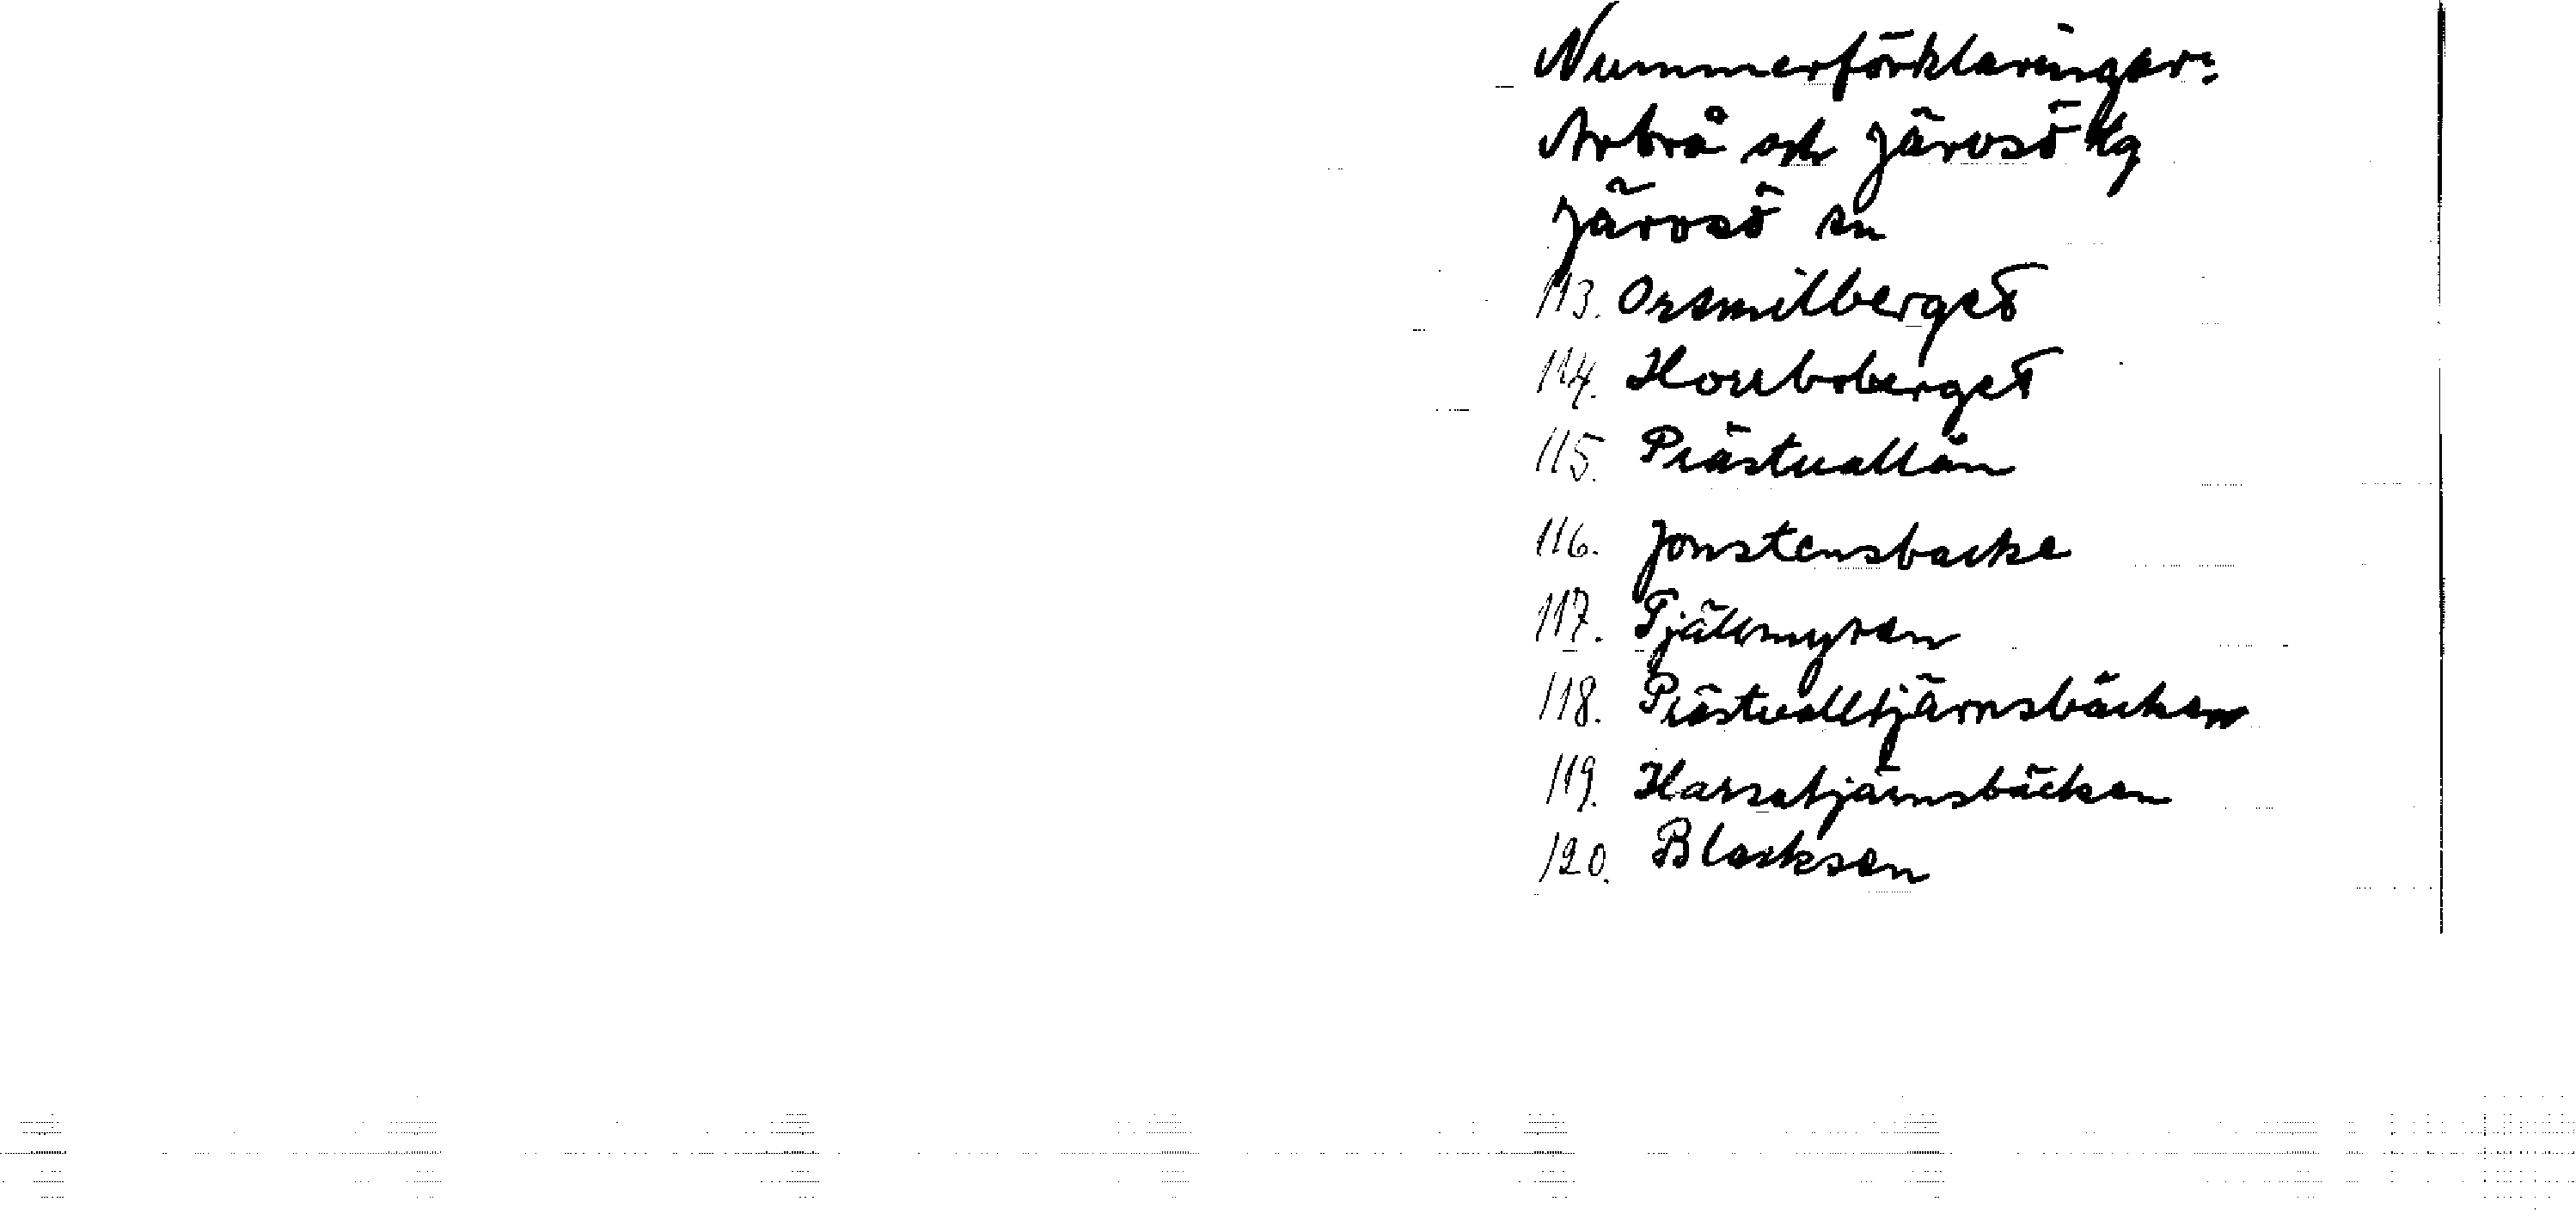 Nummerförklaringar:
Arbrå och Järvsö tg
Järvsö sn
113. Orsmilberget
114.
115. Prästvallån
116. Jonstensbacke
117. Tjällmyran
118. Prästvalltjärnsbäcken
119. Harsatjärnsbäcken
120. Blacksan